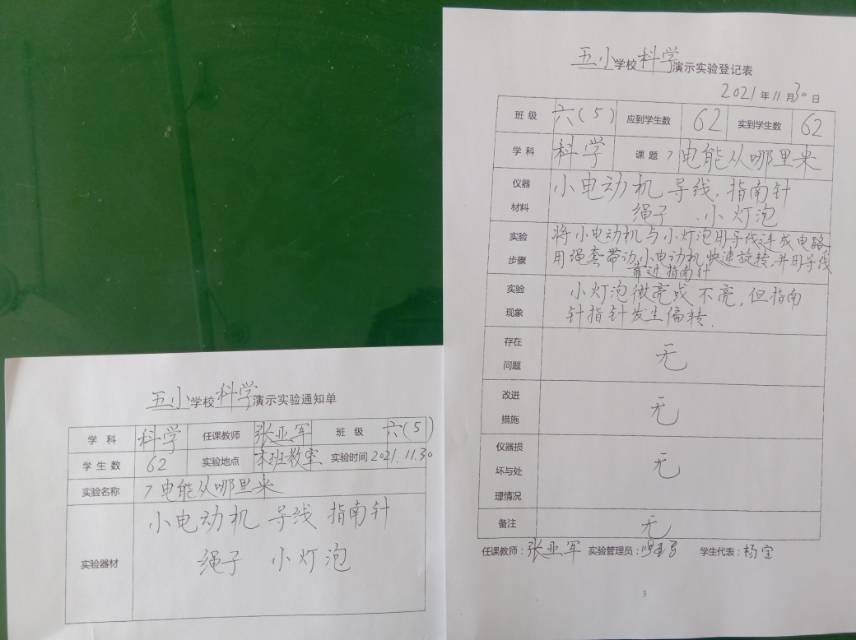 五小学校科学演示实验通知单
学科 科学 任课教师 张亚军 班级 六(5)
学生数 62 实验地点 本班教室 实验时间 2021.11.30
实验名称 7电能从哪里来
小电动机 导线 指南针
实验器材 绳子 小灯泡
五小学校科学演示实验登记表
2021年11月30日
班级 六(5) 应到学生数 62 实到学生数 62
学科 科学 课题 7电能从哪里来
仪器材料 小电动机 导线,指南针
绳子 、小灯泡
实验步骤 将小电动机与小灯泡用导线连成电路,
用绳套带动小电动机快速旋转,并用导线
靠近指南针
实验现象 小灯泡微亮或不亮,但指南
针指针发生偏转.
存在问题 无
改进措施 无
仪器损坏与处理情况 无
备注 无
任课教师:张亚军 实验管理员: 学生代表:杨宜